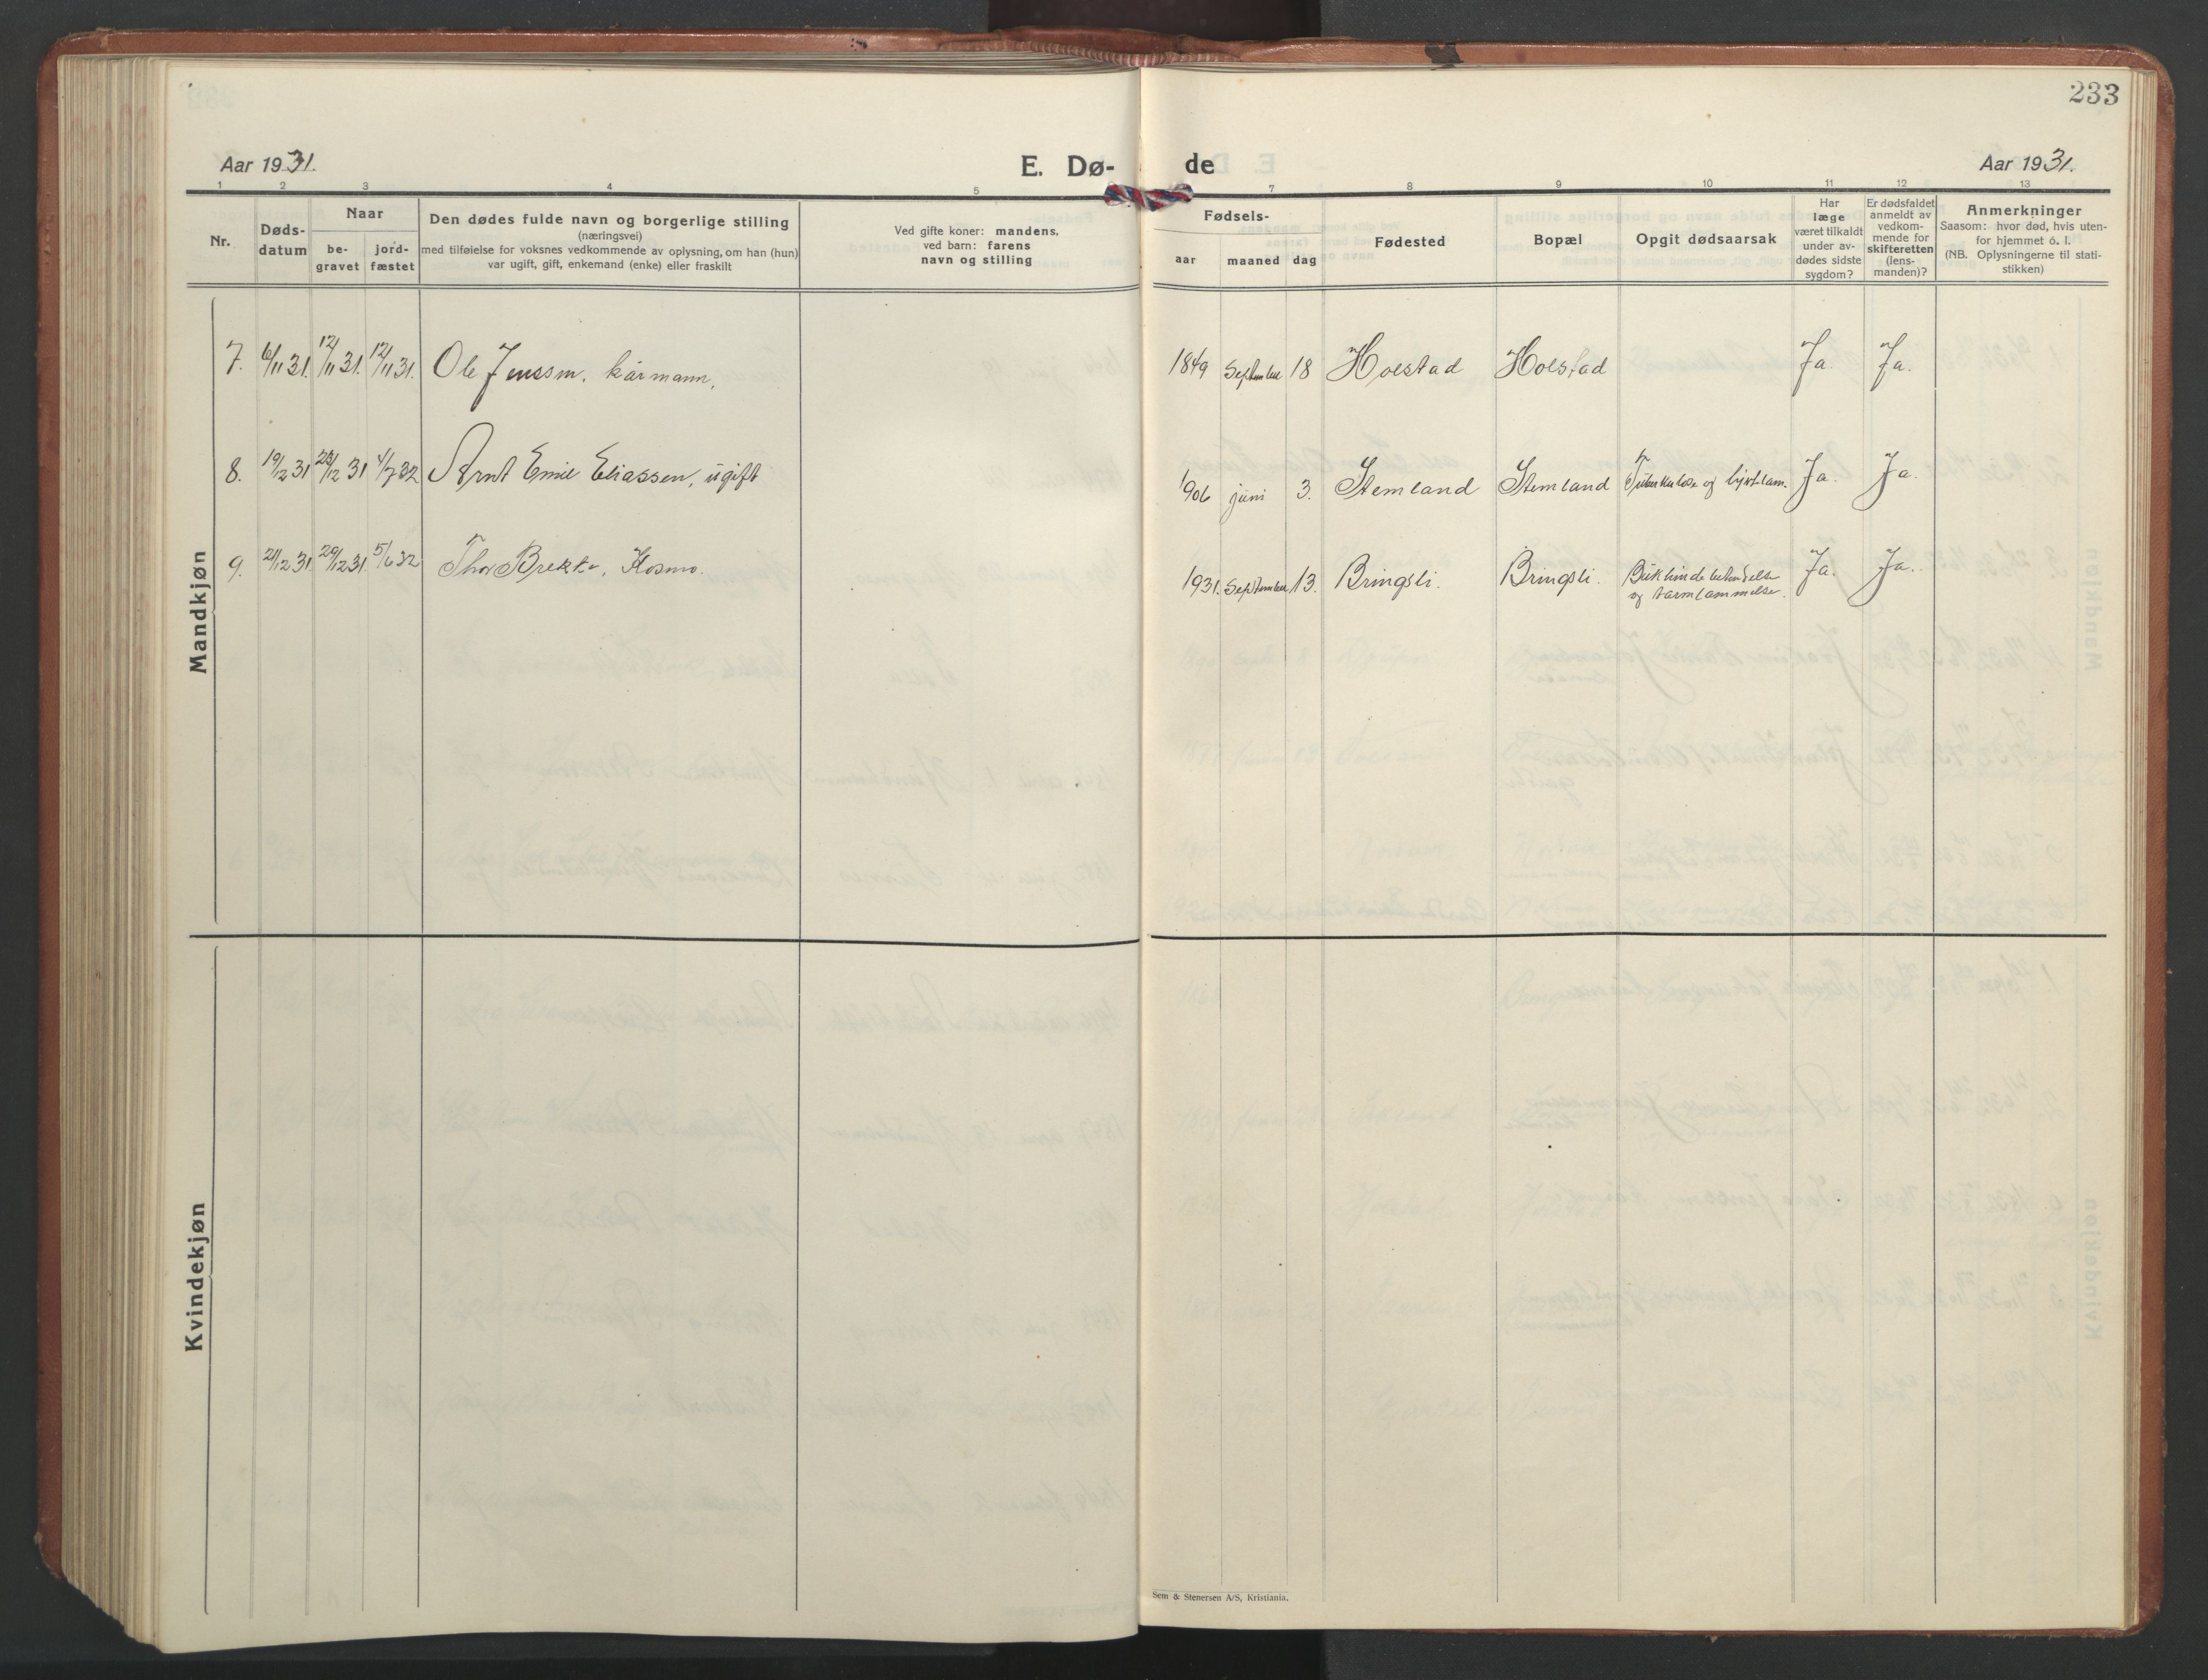 233
Aar 1931. E. Dø- de Aar 1931.
1 2 3 4 5 7 8 9 10 11 12 13
Nr.
Døds-
datum
Naar
be-
gravet
jord-
fæstet
Den dødes fulde navn og borgerlige stilling
(næringsvei)
med tilføielse for voksnes vedkommende av oplysning, om han (hun)
var ugift, gift, enkemand (enke) eller fraskilt
Ved gifte koner: mandens,
ved barn: farens
navn og stilling
Fødsels-
aar maaned dag
Fødested
Bopæl
Opgit dødsaarsak
Har
læge
været tilkaldt
under av-
dødes sidste
sygdom?
Er dødsfaldet
anmeldt av
vedkom-
mende for
skifteretten
(lens-
manden)?
Anmerkninger
Saasom: hvor død, hvis uten-
for hjemmet o. l.
(NB. Oplysningerne til stati-
stikken)
Mandkjøn
7. 6/11 31. 12/11 31. 12/11 31. Ole Jenssen, kårmann, 1849 September 18 Holstad Holstad Ja. Ja.
8. 19/12 31 4/7 32 Arnt Emil Eliassen, ugift 1906 juni 3. Stemland Stemland Tuberkulose og Ja. Ja.
9. 31. 29/12 31. 5/6 32 Thor Brekke, Kosmo. 1931. September 13. Bringsli. Bringsli. Bukhindebetendelse Ja. Ja.
og tarmlammelse.
Kvindekjøn
Sem & Stenersen A/S, Kristiania.